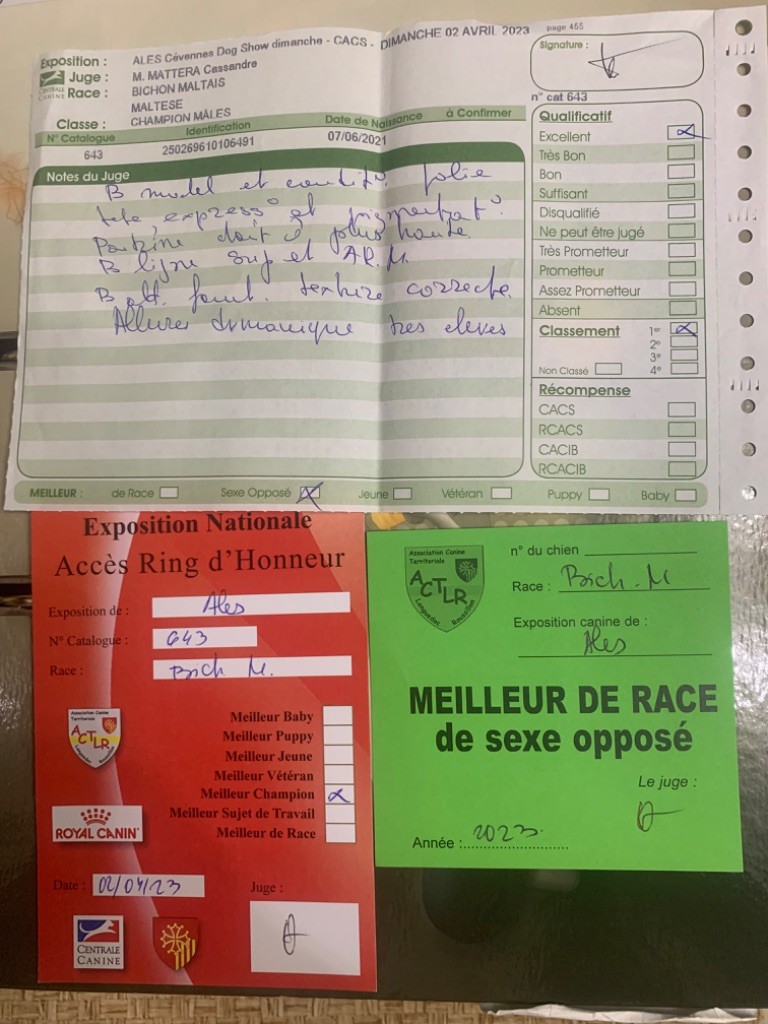 Exposition : ALES Cévennes Dog Show dimanche - CACS - DIMANCHE 02 AVRIL 2023 page 455
Juge : M. MATTERA Cassandre
CENTRALE CANINE
Race : BICHON MALTAIS
MALTESE
Classe : CHAMPION MÂLES
N° Catalogue Identification Date de Naissance à Confirmer
643 250269610106491 07/06/2021
Signature :
n° cat 643
Notes du Juge
B model et condit° jolie
tete, express° et pigmentat°
Poitrine doit plus haute
B ligne sup et AR.M.
B att. fouet. texture correcte.
Allures dynamique tres eleves
Qualificatif
Excellent
Très Bon
Bon
Suffisant
Disqualifié
Ne peut être jugé
Très Prometteur
Prometteur
Assez Prometteur
Absent
Classement 1er
2e
3e
Non Classé 4e
Récompense
CACS
RCACS
CACIB
RCACIB
MEILLEUR : de Race Sexe Opposé Jeune Vétéran Puppy Baby
Exposition Nationale
Accès Ring d'Honneur
Exposition de : Ales
N° Catalogue : 643
Race : Bich M.
Association Canine
Territoriale
ACTLR
Languedoc Roussillon
ROYAL CANIN
Meilleur Baby
Meilleur Puppy
Meilleur Jeune
Meilleur Vétéran
Meilleur Champion
Meilleur Sujet de Travail
Meilleur de Race
Date : 02/04/23
Juge :
CENTRALE
CANINE
Association Canine
Territoriale
ACTLR
Languedoc Roussillon
n° du chien
Race : Bich. M
Exposition canine de :
Ales
MEILLEUR DE RACE
de sexe opposé
Le juge :
Année : 2023